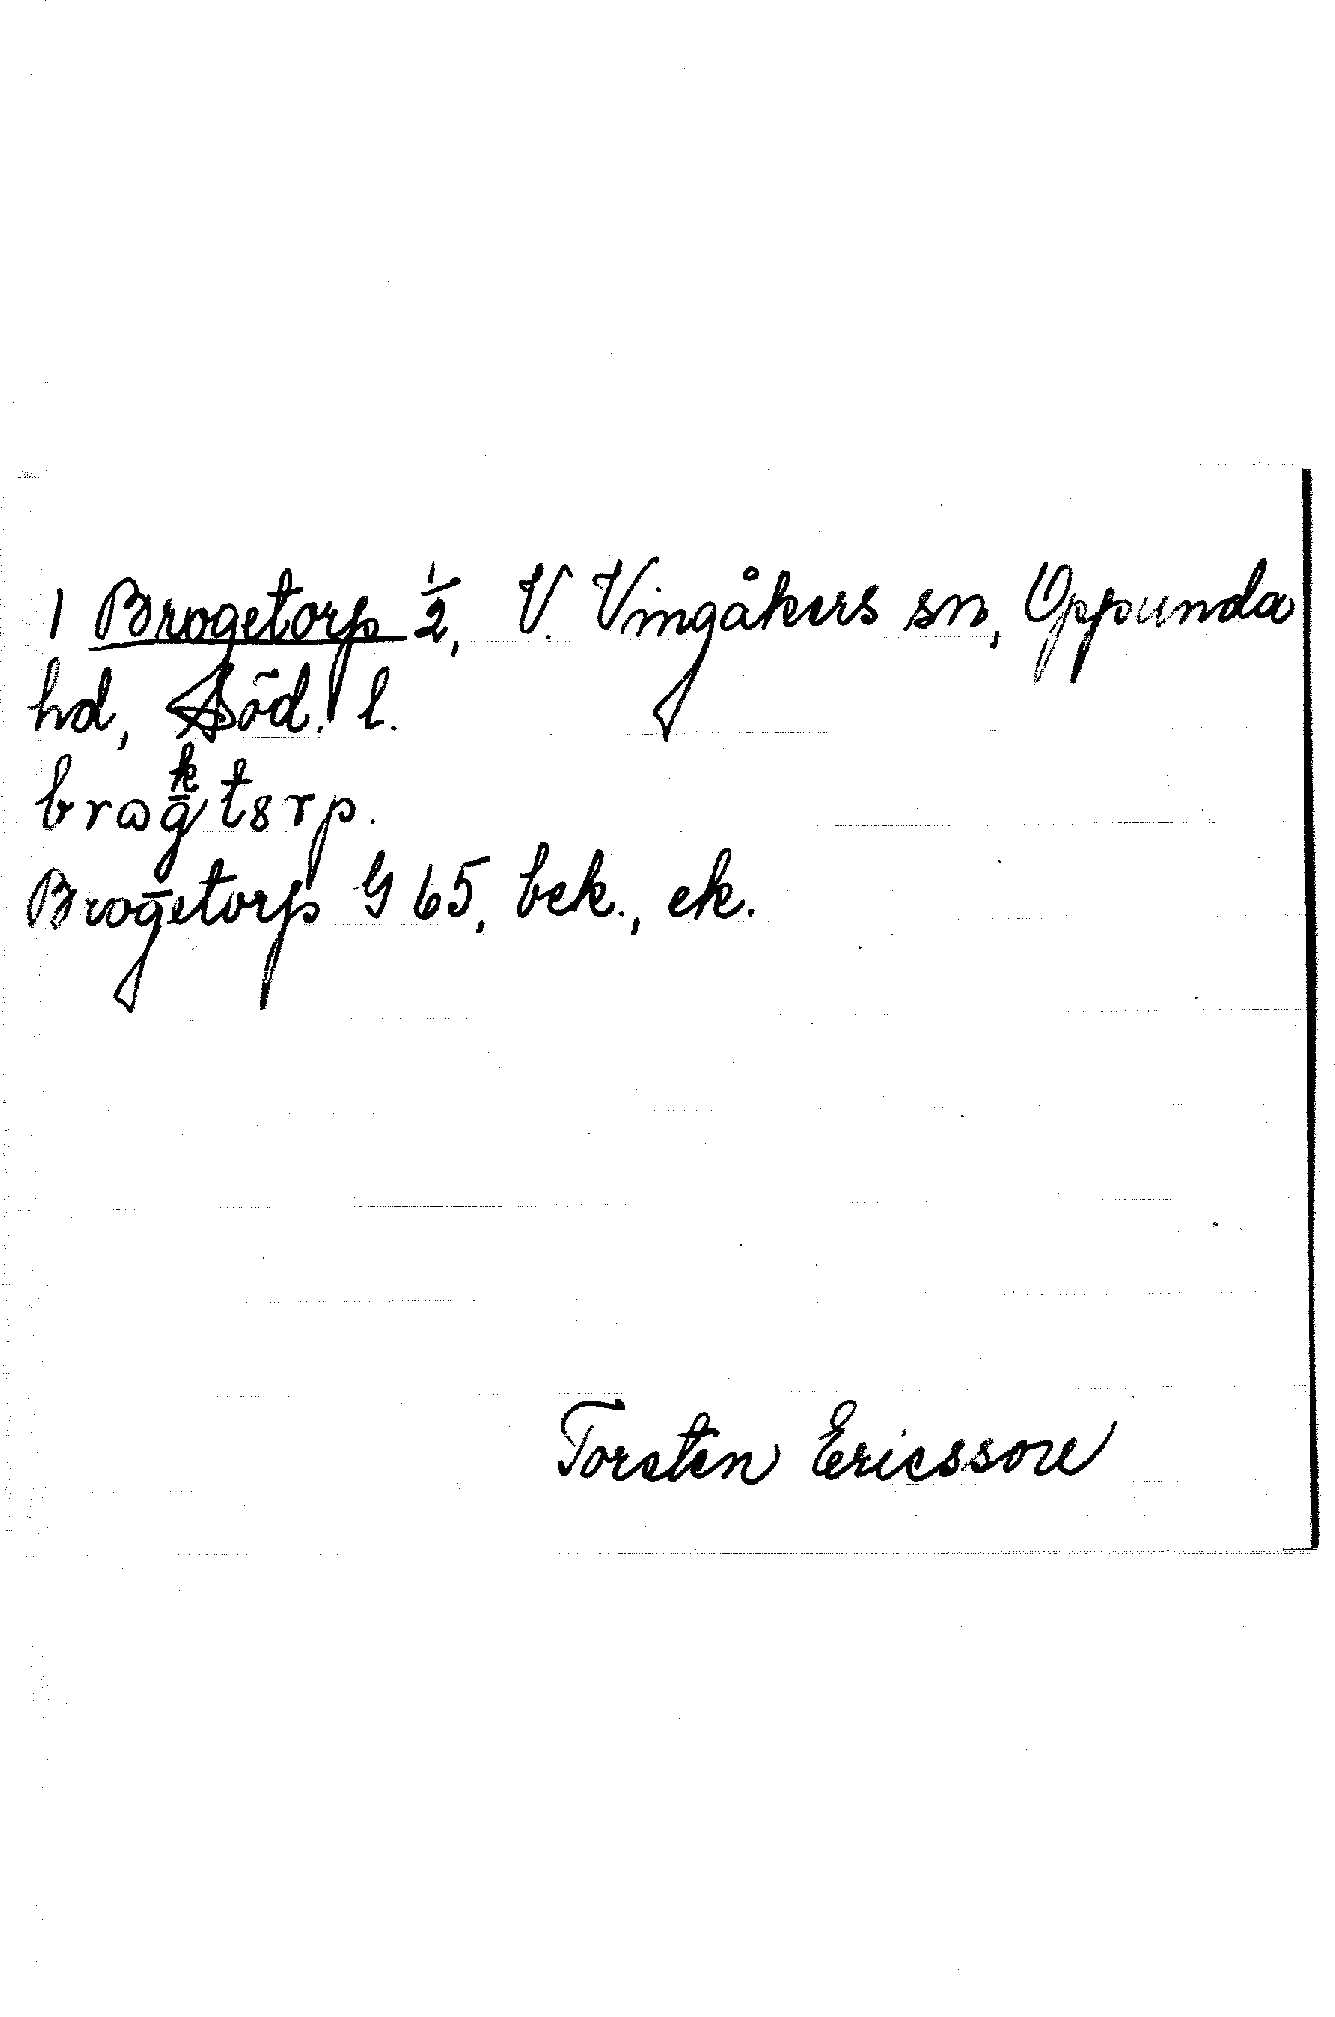 1 Brogetorp ½, V. Vingåkers sn, Oppunda
hd, Söd. l.
Brogetorp G 65, bek., ek.
Torsten Ericsson